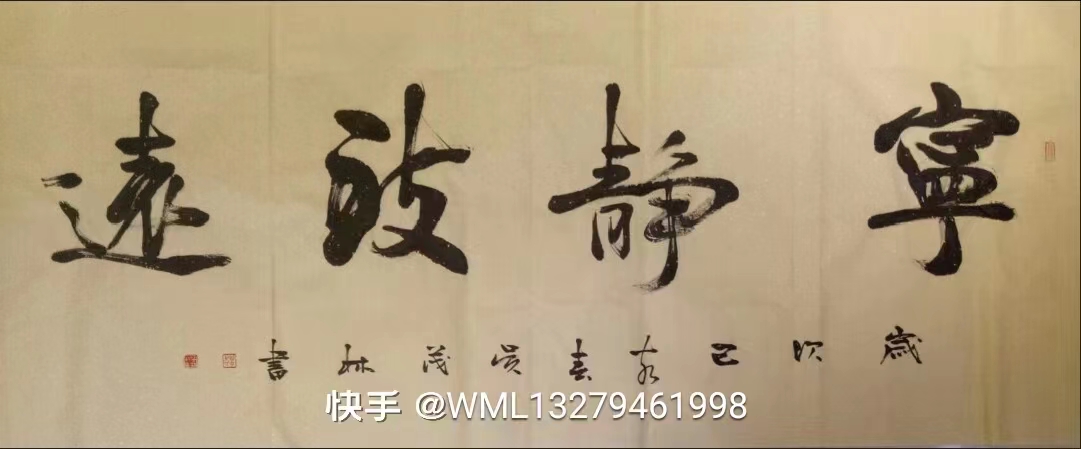 寧靜致遠
歲次己亥春吳茂林書
快手 @WML13279461998